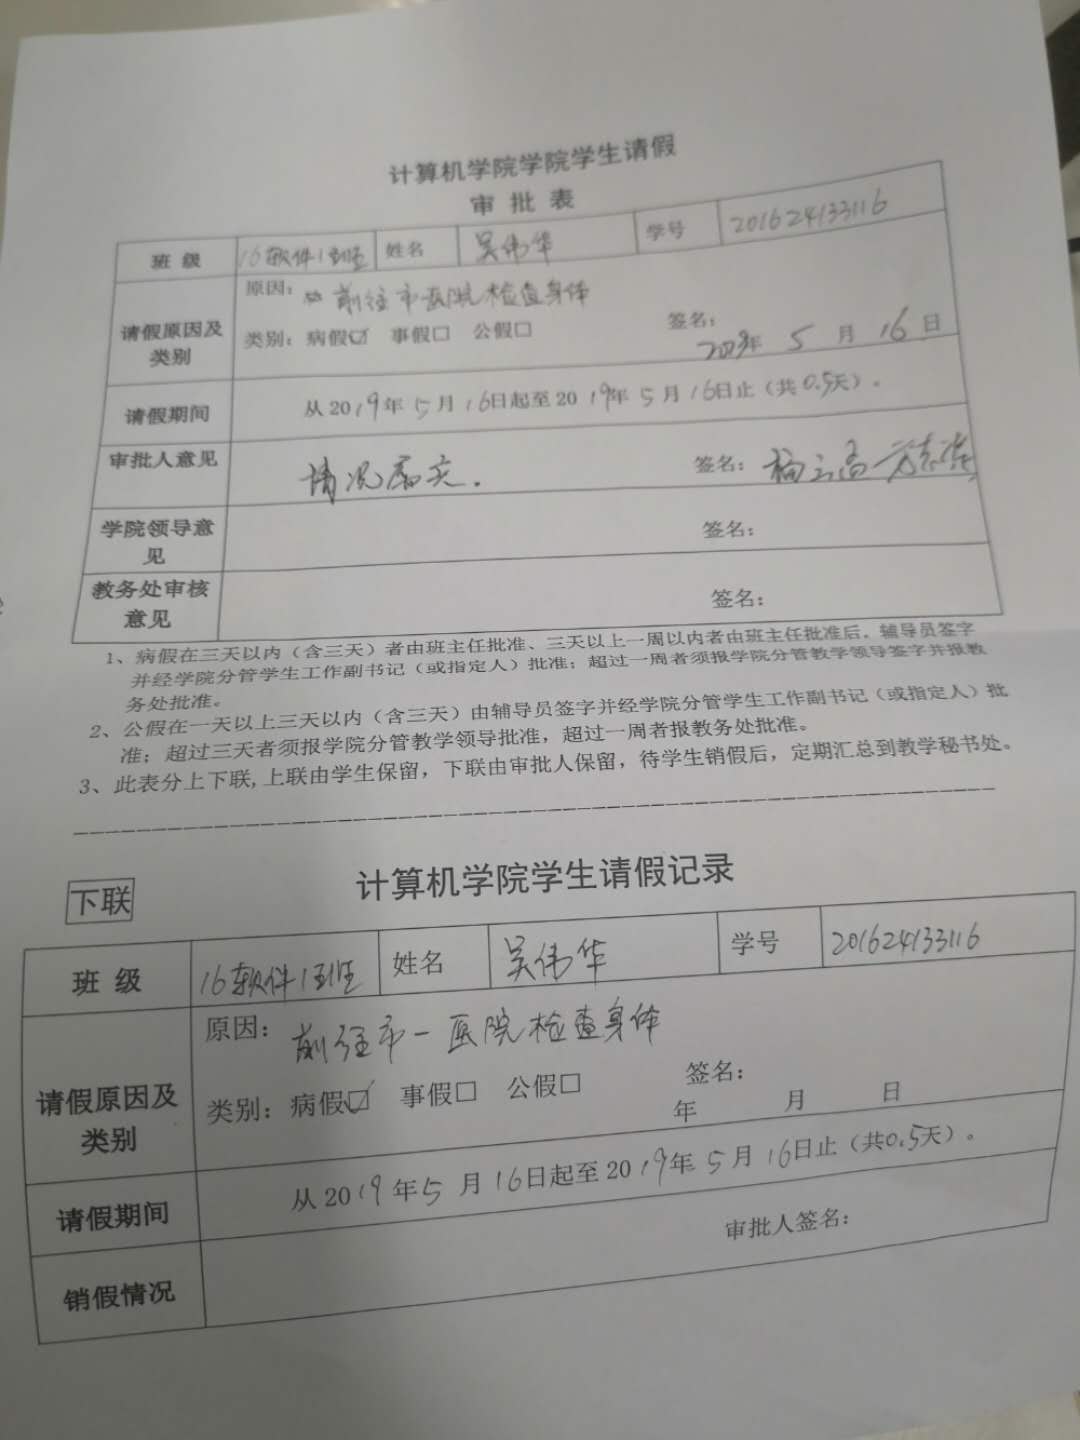 计算机学院学院学生请假
审 批 表
班 级 16软件1班 姓名 吴伟华 学号 201624133116
原因: 前往市医院检查身体
请假原因及类别 类别: 病假☑ 事假□ 公假□ 签名:
2019年 5 月 16 日
请假期间 从2019年5月16日起至2019年5月16日止（共0.5天）。
审批人意见 情况属实. 签名:
学院领导意见 签名:
教务处审核意见 签名:
1、病假在三天以内（含三天）者由班主任批准、三天以上一周以内者由班主任批准后，辅导员签字
并经学院分管学生工作副书记（或指定人）批准；超过一周者须报学院分管教学领导签字并报教
务处批准。
2、公假在一天以上三天以内（含三天）由辅导员签字并经学院分管学生工作副书记（或指定人）批
准；超过三天者须报学院分管教学领导批准，超过一周者报教务处批准。
3、此表分上下联,上联由学生保留，下联由审批人保留，待学生销假后，定期汇总到教学秘书处。
下联 计算机学院学生请假记录
班 级 16软件1班 姓名 吴伟华 学号 201624133116
原因: 前往市一医院检查身体
请假原因及类别 类别: 病假☑ 事假□ 公假□ 签名:
年 月 日
请假期间 从2019年5月16日起至2019年5月16日止（共0.5天）。
销假情况 审批人签名: